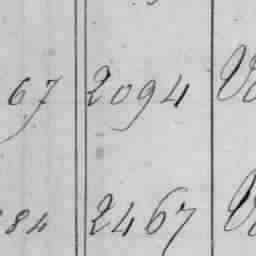 67 2094
84 2467